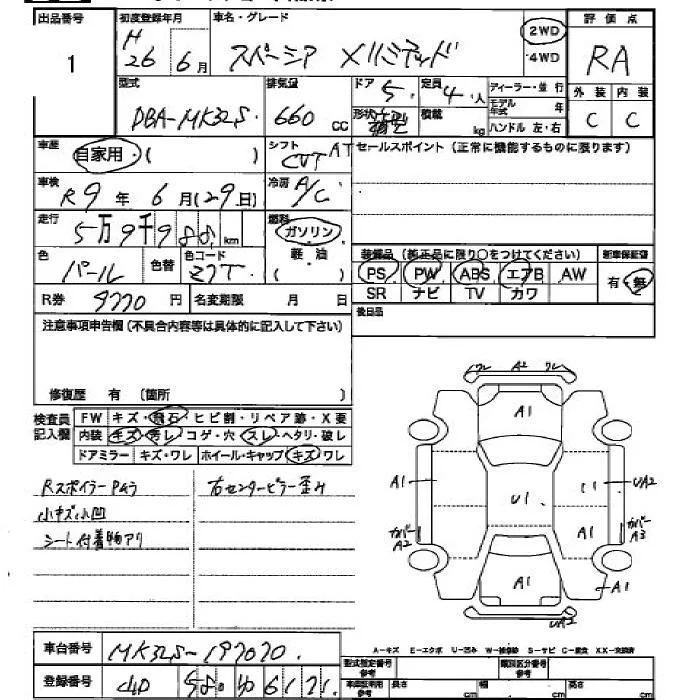 出品番号 初度登録年月 車名・グレード 評価点
1 H 26年 6月 スペーシア Xリミテッド 2WD ・ 4WD RA
型式 排気量 ドア 定員 ディーラー・並行 外装 内装
DBA-MK32S. 660 cc 5. 4.人 モデル年式 年 C C
形状 積載 kg ハンドル 左・右
車歴 自家用・( ) シフト CVT AT セールスポイント(正常に機能するものに限ります)
車検 R9年 6月(29日) 冷房 A/C
走行 5万9千9 km 燃料 ガソリン・軽油 ( )
装備品(純正品に限り○をつけてください) 新車保証書
色 パール 色替 色コード Z7T
PS PW ABS エアB AW 有・無
SR ナビ TV カワ
R券 9770円 名変期限 月 日 後日品
注意事項申告欄(不具合内容等は具体的に記入して下さい)
修復歴 有 (箇所 )
検査員記入欄 FW キズ・飛石・ヒビ割・リペア跡・X要
内装 キズ・汚レ・コゲ・穴・スレ・ヘタリ・破レ
ドアミラー キズ・ワレ ホイール・キャップ キズ・ワレ
Rスポイラー 右センターピラー歪み
小キズ小凹
シート付着物アリ
ワレ A2 ワレ
A1
A1 U1 UA2
カバー A2 A1 カバー A3
A1 A1
UA2
A-キズ E-エクボ U-凹み W-補修跡 S-サビ C-腐食 XX-交換済
車台番号 MK32S-197070. 型式指定番号 参考 類別区分番号 参考
登録番号 長さ cm 幅 cm 高さ cm